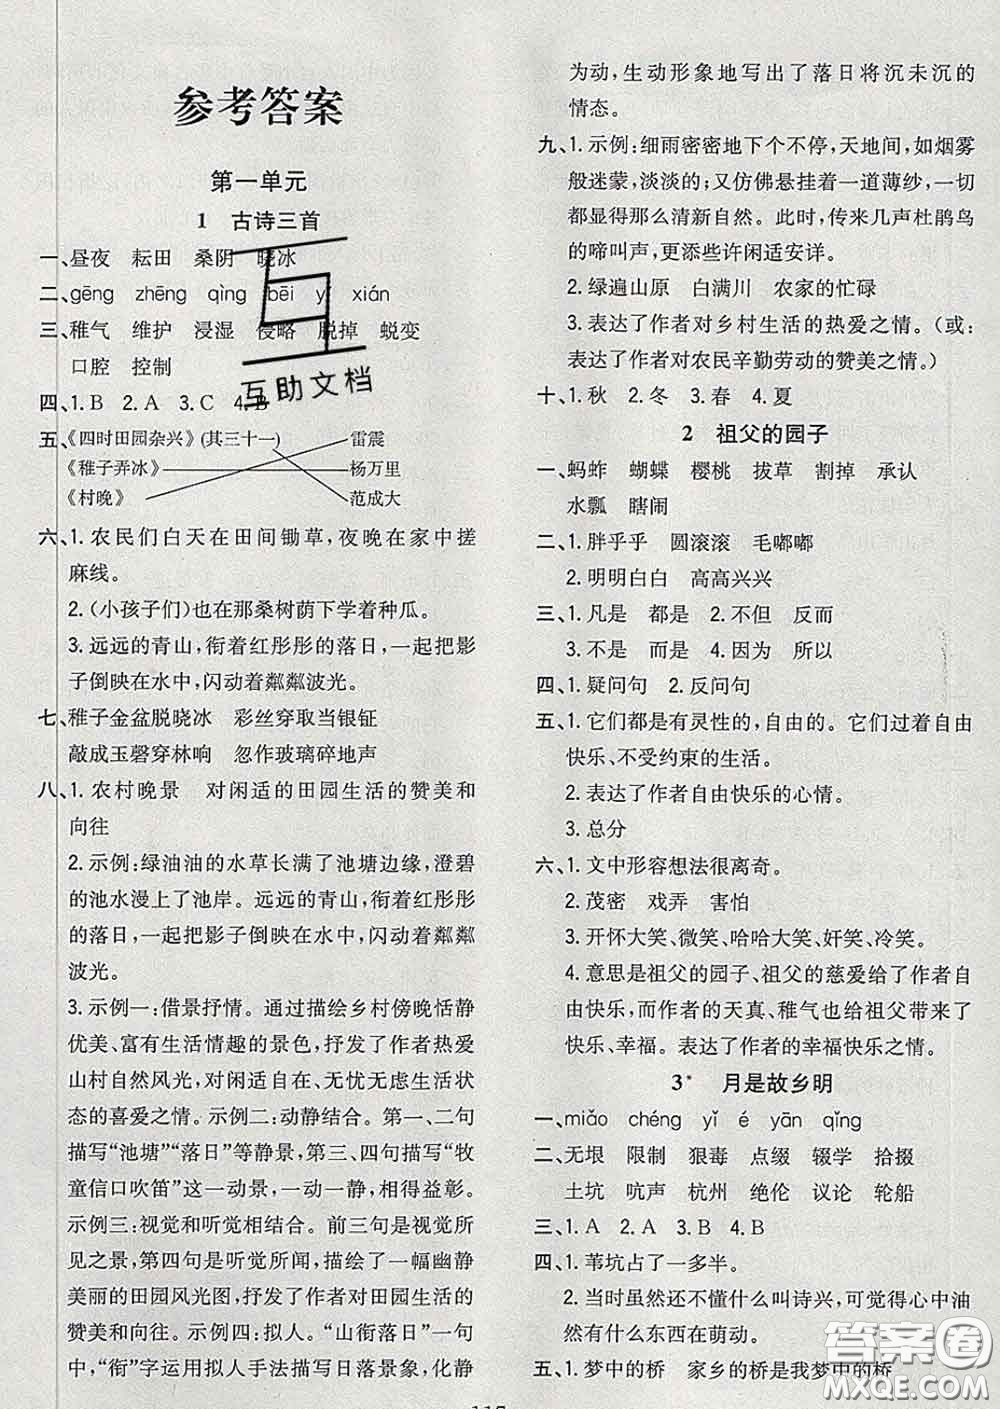 参考答案
第一单元
1 古诗三首
一、昼夜 耘田 桑阴 晓冰
二、gēng zhēng qìng bēi yí xián
三、稚气 维护 浸湿 侵略 脱掉 蜕变
口腔 控制
四、1. B 2. A 3. C 4. B
五、《四时田园杂兴》(其三十一) 雷震
《稚子弄冰》 杨万里
《村晚》 范成大
六、1. 农民们白天在田间锄草,夜晚在家中搓
麻线。
2. (小孩子们)也在那桑树荫下学着种瓜。
3. 远远的青山,衔着红彤彤的落日,一起把影
子倒映在水中,闪动着粼粼波光。
七、稚子金盆脱晓冰 彩丝穿取当银钲
敲成玉磬穿林响 忽作玻璃碎地声
八、1. 农村晚景 对闲适的田园生活的赞美和
向往
2. 示例:绿油油的水草长满了池塘边缘,澄碧
的池水漫上了池岸。远远的青山,衔着红彤彤
的落日,一起把影子倒映在水中,闪动着粼粼
波光。
3. 示例一:借景抒情。通过描绘乡村傍晚恬静
优美、富有生活情趣的景色,抒发了作者热爱
山村自然风光,对闲适、无忧无虑生活状
态的喜爱之情。示例二:动静结合。第一、二句
描写“池塘”“落日”等静景,第三、四句描写“牧
童信口吹笛”这一动景,动静结合,相得益彰。
示例三:视觉和听觉相结合。前三句是视觉所
见之景,第四句是听觉所闻,描绘了一幅幽静
美丽的田园风光图,抒发了作者对田园生活的
赞美和向往。示例四:拟人。“山衔落日”一句
中,“衔”字运用拟人手法描写日落景象,化静
为动,生动形象地写出了落日将沉未沉的
情态。
九、1. 示例:细雨密密地下个不停,天地间,如烟雾
般迷蒙,淡淡的;又仿佛悬挂着一道薄纱,一切
都显得那么清新自然。此时,传来几声杜鹃鸟
的啼叫声,更添些许闲适安详。
2. 绿遍山原 白满川 农家的忙碌
3. 表达了作者对乡村生活的热爱之情。(或:
表达了作者对农民辛勤劳动的赞美之情。)
十、1. 秋 2. 冬 3. 春 4. 夏
2 祖父的园子
一、蚂蚱 蝴蝶 樱桃 拔草 割掉 承认
水瓢 瞎闹
二、1. 胖乎乎 圆滚滚 毛嘟嘟
2. 明明白白 高高兴兴
三、1. 凡是 都是 2. 不但 反而
3. 不是 而是 4. 因为 所以
四、1. 疑问句 2. 反问句
五、1. 它们都是有灵性的,自由的。它们过着自由
快乐、不受约束的生活。
2. 表达了作者自由快乐的心情。
3. 总分
六、1. 文中形容想法很离奇。
2. 茂密 戏弄 害怕
3. 开怀大笑、微笑、哈哈大笑、奸笑、冷笑。
4. 意思是祖父的园子、祖父的慈爱给了作者自
由快乐,而作者的天真、稚气也给祖父带来了
快乐、幸福。表达了作者的幸福快乐之情。
3* 月是故乡明
一、miǎo chéng yǐ é yān qǐng
二、无垠 限制 狠毒 点缀 辍学 拾掇
土坑 吭声 杭州 绝伦 议论 轮船
三、1. A 2. A 3. B 4. B
四、1. 苇坑占了一多半。
2. 当时虽然还不懂什么叫诗兴,可觉得心中油
然有什么东西在萌动。
五、1. 梦中的桥 家乡的桥是我梦中的桥
互助文档
答案圈
MXQE.COM